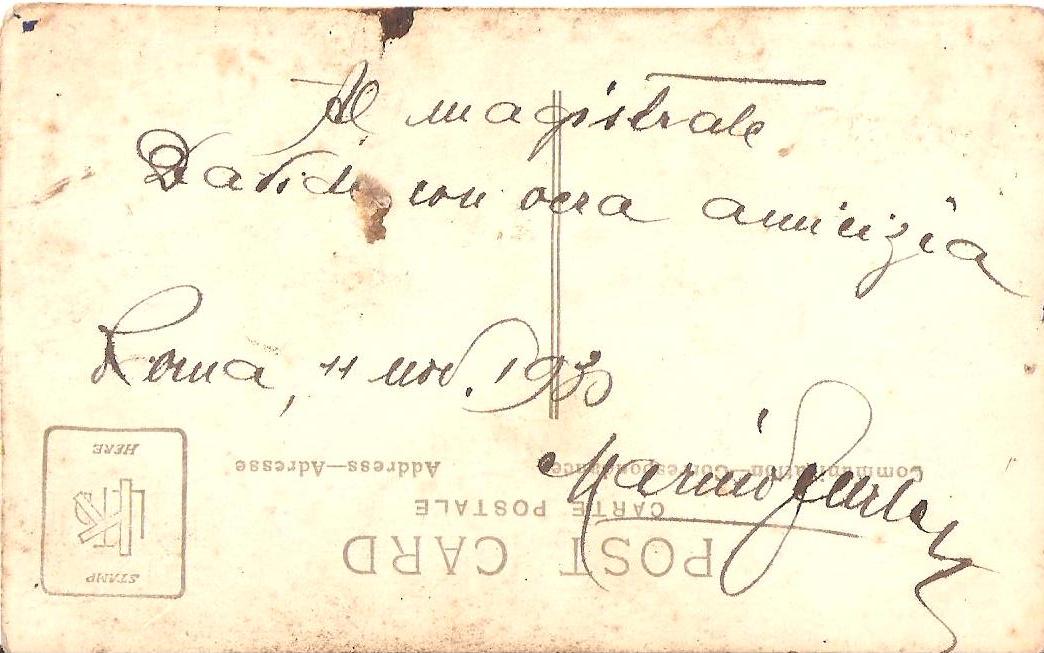 Al magistrale
Davide con vera amicizia
Roma, 11 nov. 1930
Marino
POST CARD
CARTE POSTALE
Communication—Correspondance
Address—Adresse
STAMP
HERE